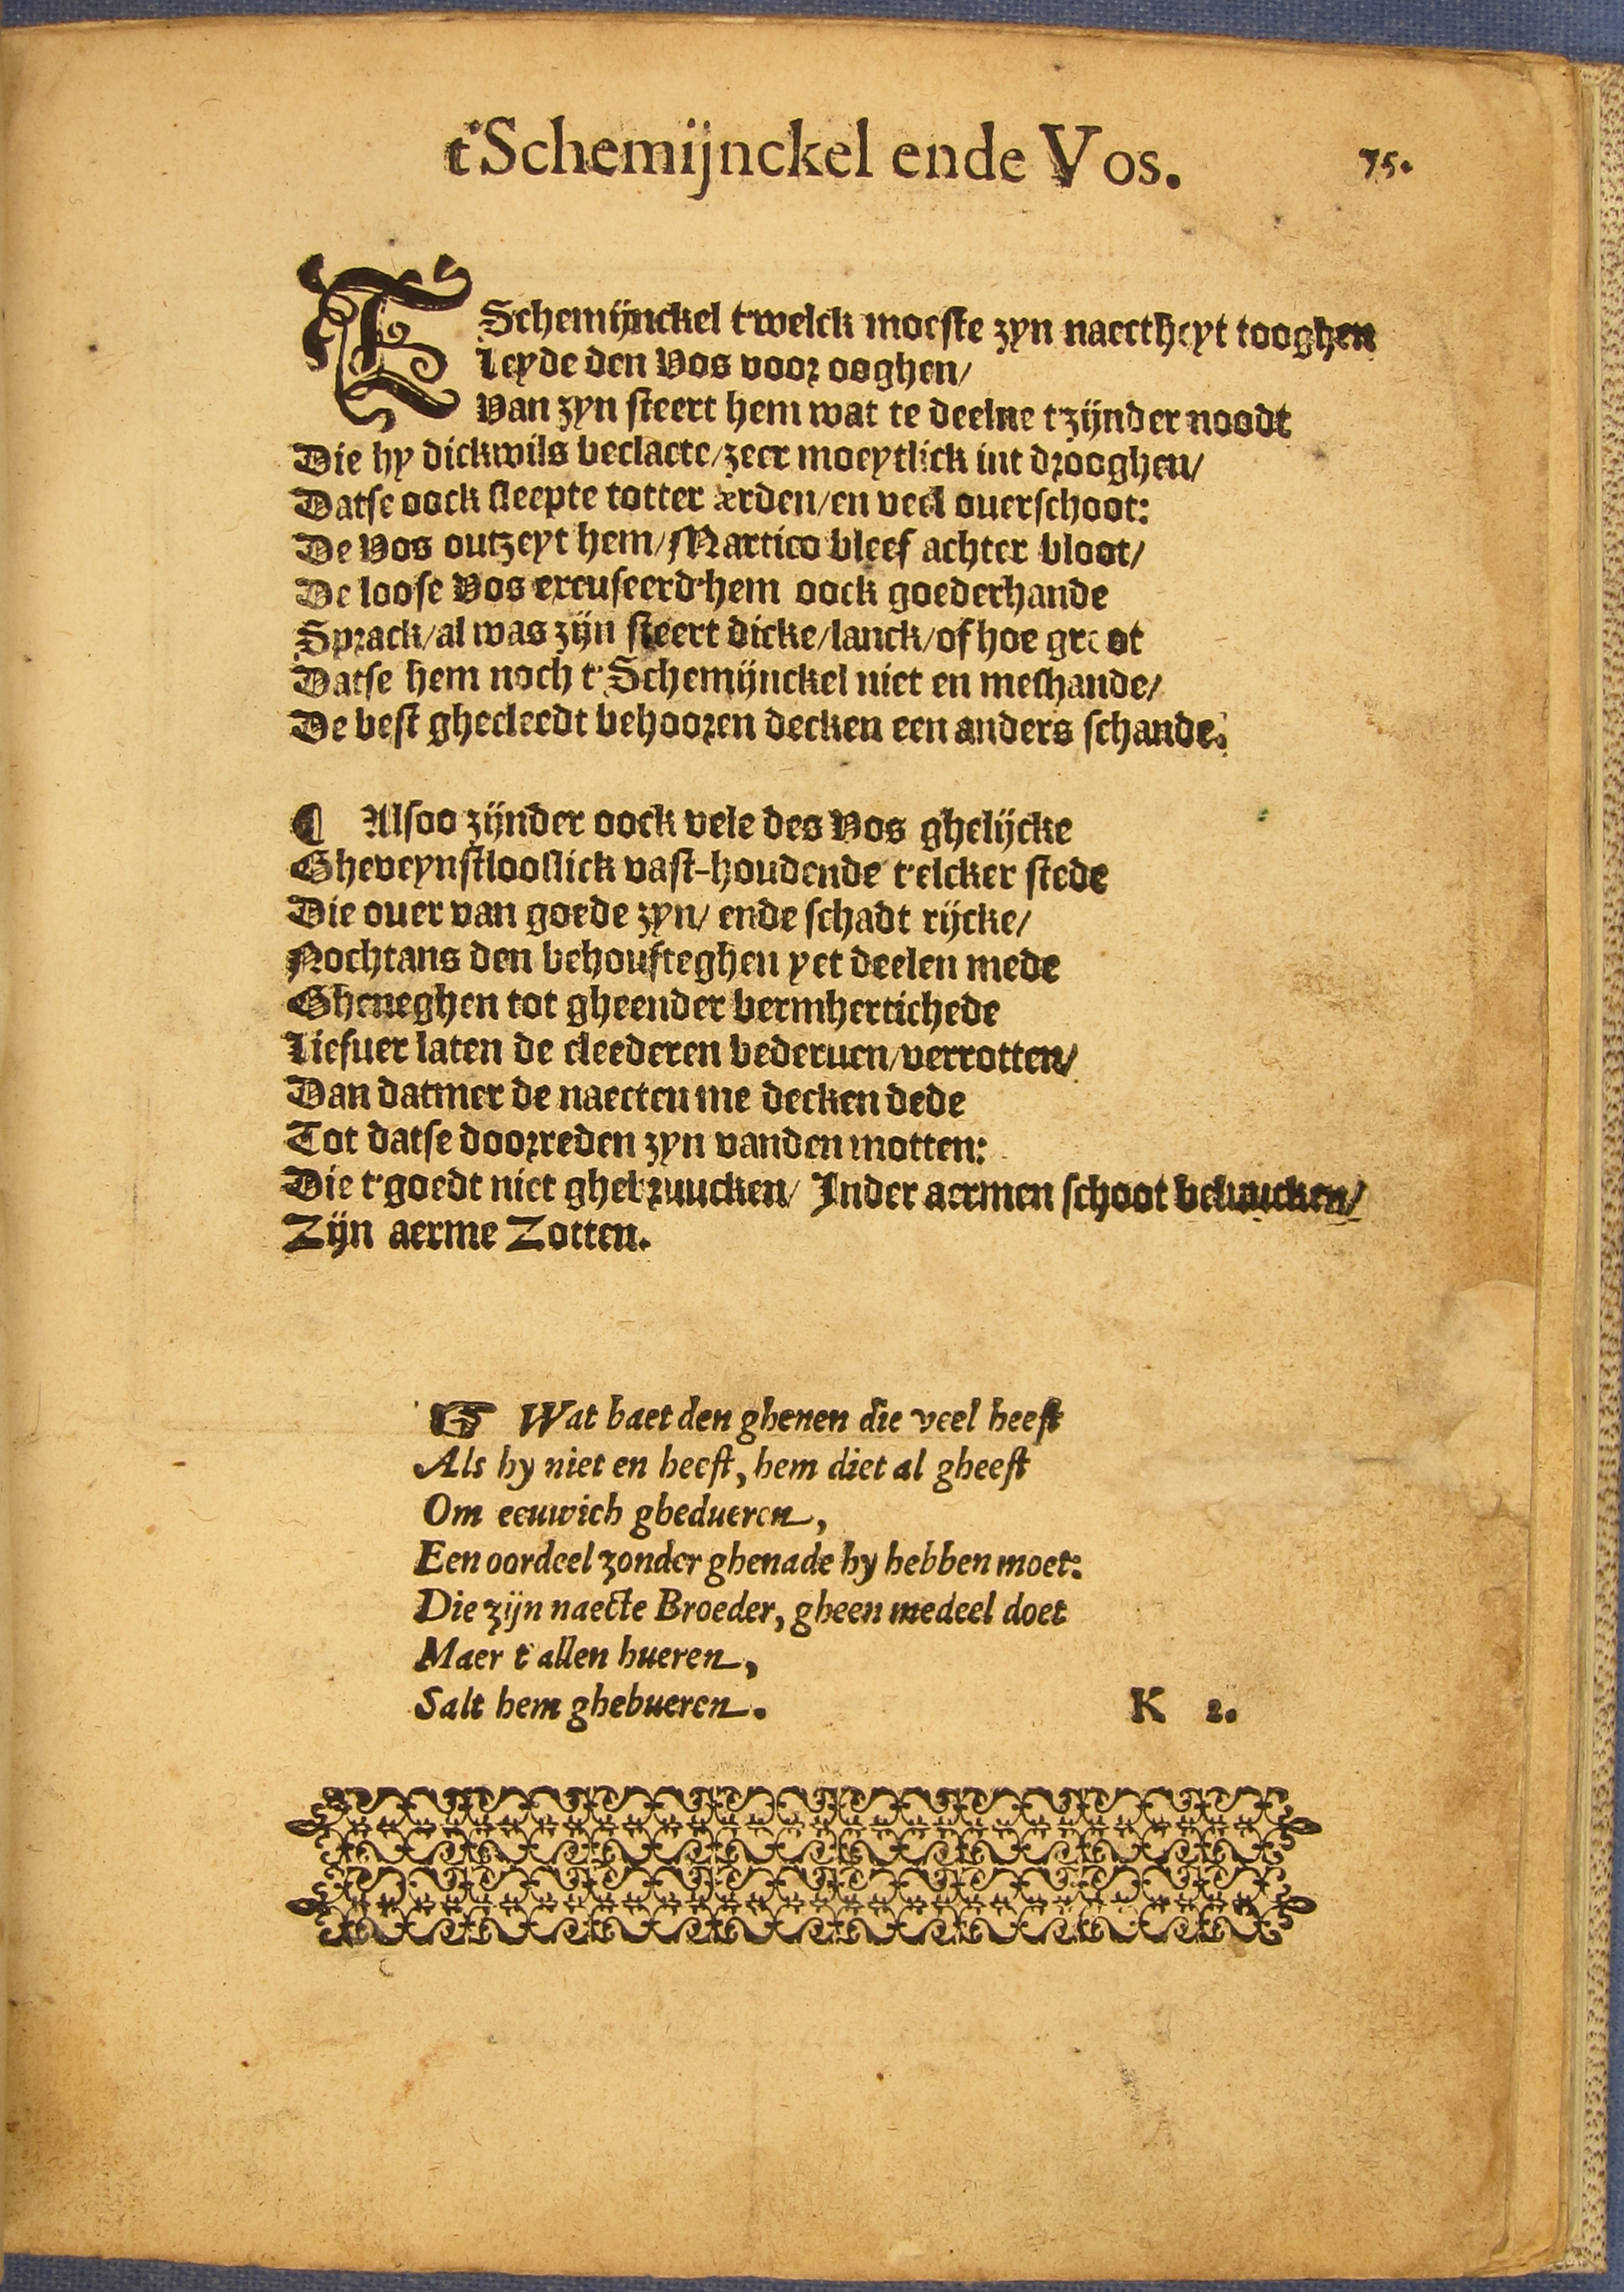 t'Schemijnckel ende Vos.
75.
TSchemijnckel t'welck moeste zyn naectheyt tooghen
Leyde den Vos voor ooghen/
Van zyn steert hem wat te deelne t'zijnder noodt
Die hy dickwils beclaecte/zeer moeytlick int drooghen/
Datse oock sleepte totter ærden/en veel ouerschoot:
De Vos outzeyt hem/Martico bleef achter bloot/
De loose Vos excuseerd'hem oock goederhande
Sprack/al was zijn steert dicke/lanck/of hoe groot
Datse hem noch t'Schemijnckel niet en meshande/
De best ghecleedt behooren decken een anders schande.
¶ Alsoo zijnder oock vele des Vos ghelijcke
Gheveynstlooslick vast-houdende t'elcker stede
Die ouer van goede zyn/ ende schadt rijcke/
Nochtans den behoufteghen yet deelen mede
Gheneghen tot gheender bermhertichede
Liefuer laten de cleederen bederuen/verrotten/
Dan datmer de naecten me decken dede
Tot datse doorreden zyn vanden motten:
Die t'goedt niet ghebruucken/ Inder aermen schoot beluucken/
Zijn aerme Zotten.
☞ Wat baet den ghenen die veel heeft
Als hy niet en heeft, hem diet al gheeft
Om eeuwich ghedueren,
Een oordeel zonder ghenade hy hebben moet:
Die zijn naecte Broeder, gheen medeel doet
Maer t'allen hueren,
Salt hem ghebueren.
K 2.